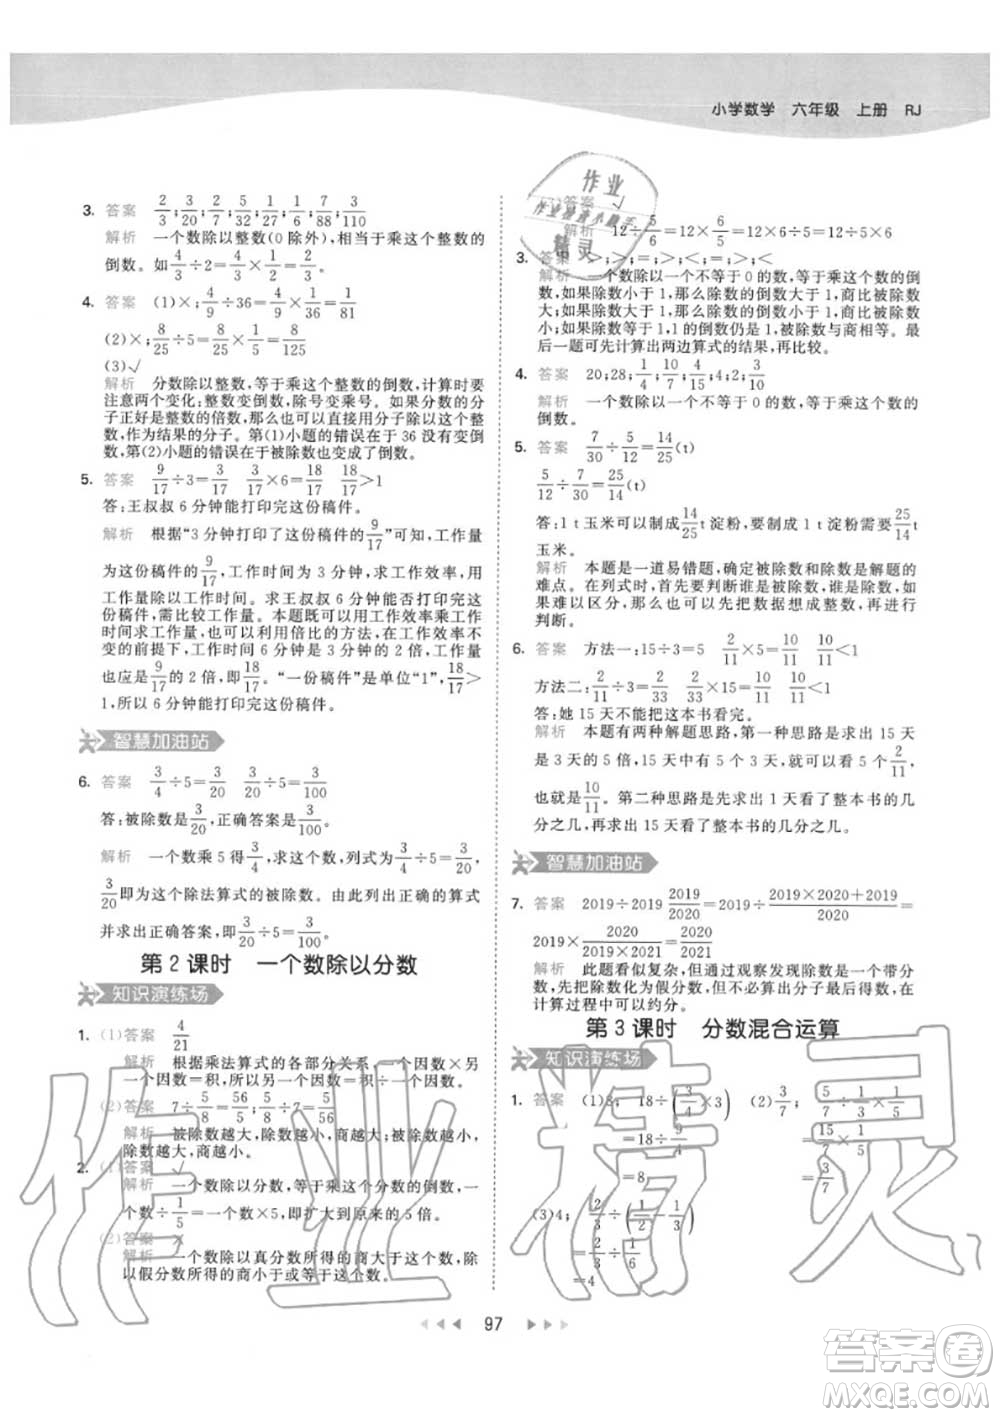 小学数学 六年级 上册 RJ
3. 答案 2/3;3/20;7/27;5/32;1/27;1/6;7/88;3/110
解析 一个数除以整数(0 除外),相当于乘这个整数的
倒数。如 4/3÷2=4/3×1/2=2/3。
4. 答案 (1)×,4/9÷36=4/9×1/36=1/81
(2)×,8/25÷5=8/25×1/5=8/125
(3)√
解析 分数除以整数,等于乘这个整数的倒数,计算时要
注意两个变化:整数变倒数,除号变乘号。如果分数的分
子正好是整数的倍数,那么也可以直接用分子除以整
数,作为结果的分子。第(1)小题的错误在于 36 没有变倒
数,第(2)小题的错误在于被除数变成了倒数。
5. 答案 9/17÷3=3/17 3/17×6=18/17 18/17>1
答:王叔叔 6 分钟能打印完这份稿件。
解析 根据“3 分钟打印了这份稿件的9/17”可知,工作量
为这份稿件的9/17,工作时间为 3 分钟,可求工作效率,用
工作量除以工作时间。求王叔叔 6 分钟能否打印完这
份稿件,需比较工作量。本题既可以用工作效率乘工作
时间求工作量,也可以利用倍比的方法,在工作效率不
变的前提下,工作时间 6 分钟是 3 分钟的 2 倍,工作量
也应是9/17的 2 倍,即18/17。“一份稿件”是单位“1”,18/17>
1,所以 6 分钟能打印完这份稿件。
智慧加油站
6. 答案 3/4÷5=3/20 3/20÷5=3/100
答:被除数是3/20,正确答案是3/100。
解析 一个数乘 5 得3/4,求这个数,列式为3/4÷5=
3/20即为这个除法算式的被除数。由此列出正确的算式
并求出正确答案,即3/20÷5=3/100。
第 2 课时 一个数除以分数
知识演练场
1. (1)答案 4/21
解析 根据乘法算式的各部分关系,一个因数=积÷另一个因数。
(2)答案 7÷5/8=56/5;56/5÷5/56
解析 被除数越大,除数越小,商越大;被除数越小,
除数越大,商越小。
2. (1)答案 √
解析 一个数除以分数,等于乘这个分数的倒数,一个
数÷1/5=一个数×5,即扩大到原来的 5 倍。
(2)答案 ×
解析 一个数除以真分数所得的商大于这个数,除
以假分数所得的商小于或等于这个数。
97
(3)答案 √
解析 12÷5/6=12×6/5=12÷5×6
3. 答案 >;>;<;=;>;<
解析 一个数除以一个不等于 0 的数,等于乘这个数的倒
数,如果除数小于 1,那么除数的倒数大于 1,商比被除数
大;如果除数大于 1,那么除数的倒数小于 1,商比被除数
小,如果除数等于 1,1 的倒数仍是 1,被除数与商相等。最
后一题可先计算出两边算式的结果,再比较。
4. 答案 20;28;1/4;4/9;4;2;3/10
解析 一个数除以一个不等于 0 的数,等于乘这个数的
倒数。
5. 答案 7/30÷5/12=14/25(t)
5/12÷7/30=25/14(t)
答:1 t 玉米可以制成14/25 t 淀粉,要制成 1 t 淀粉需要25/14 t
玉米。
解析 本题是一道易错题,确定被除数和除数是解题的
难点。在列式时,首先要判断谁是被除数,谁是除数,如
果难以区分,那么可以先把数据想成整数,再进行
判断。
6. 答案 方法一:15÷3=5 2/11×5=10/11 10/11<1
方法二:2/11÷3=2/33 2/33×15=10/11 10/11<1
答:她 15 天不能把这本书看完。
解析 本题有两种解题思路,第一种思路是先求出 15 天
是 3 天的 5 倍,那么 15 天就可以看完这本书的 5 个2/11,
也就是10/11。第二种思路是先求出 1 天看整本书的几分
分之几,再求出 15 天看了整本书的几分之几。
智慧加油站
7. 答案 2019÷2019 2019/2020=2019÷(2019×2020+2019)/2020=
2019×2020/(2019×2021)=2020/2021
解析 此题看似复杂,但通过观察发现除数是一个带分
数,先把除数化为假分数。但不必算出分子的得数,在
计算过程中可以约分。
第 3 课时 分数混合运算
知识演练场
1. 答案 (1)8; 18÷(3/4×3) (2)3/7; 5/7÷1/3×1/5
=18÷9/4 =15/7×1/5
=8 =3/7
(3)4; 2/3÷(2/3-1/2)
=2/3÷1/6
=4
作业精灵
答案圈
MXQE.COM